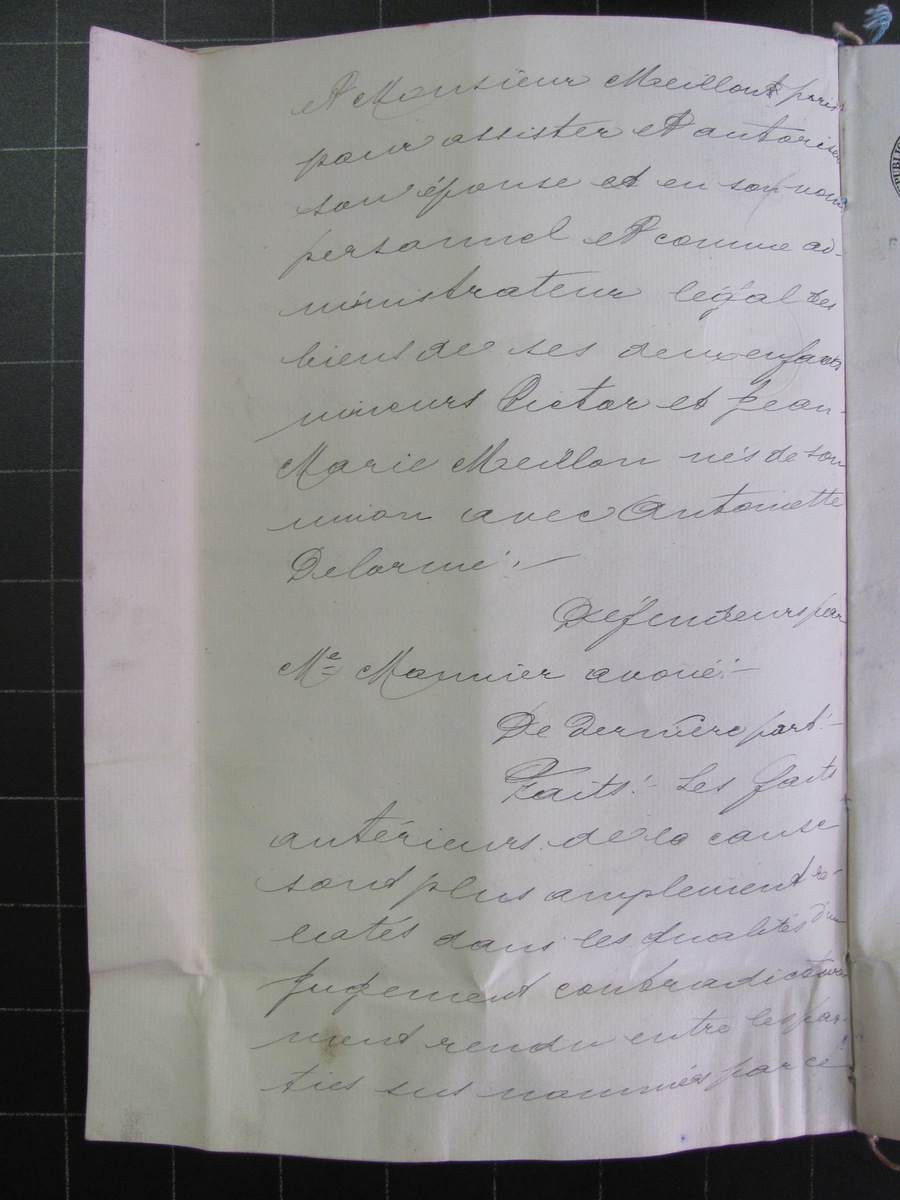 Et Monsieur Meillon pris
pour assister et autoriser
son épouse et en son nom
personnel et comme ad-
ministrateur légal des
biens de ses deux enfants
mineurs Victor et Jean-
Marie Meillon nés de son
union avec Antoinette
Delorme.-
Défendeurs par
Me Monnier avoué.-
De dernière part.-
Faits.- Les faits
antérieurs de la cause
sont plus amplement re-
latés dans les qualités d'un
jugement contradictoire-
ment rendu entre les par-
ties sus nommées par ce
PUBLIC